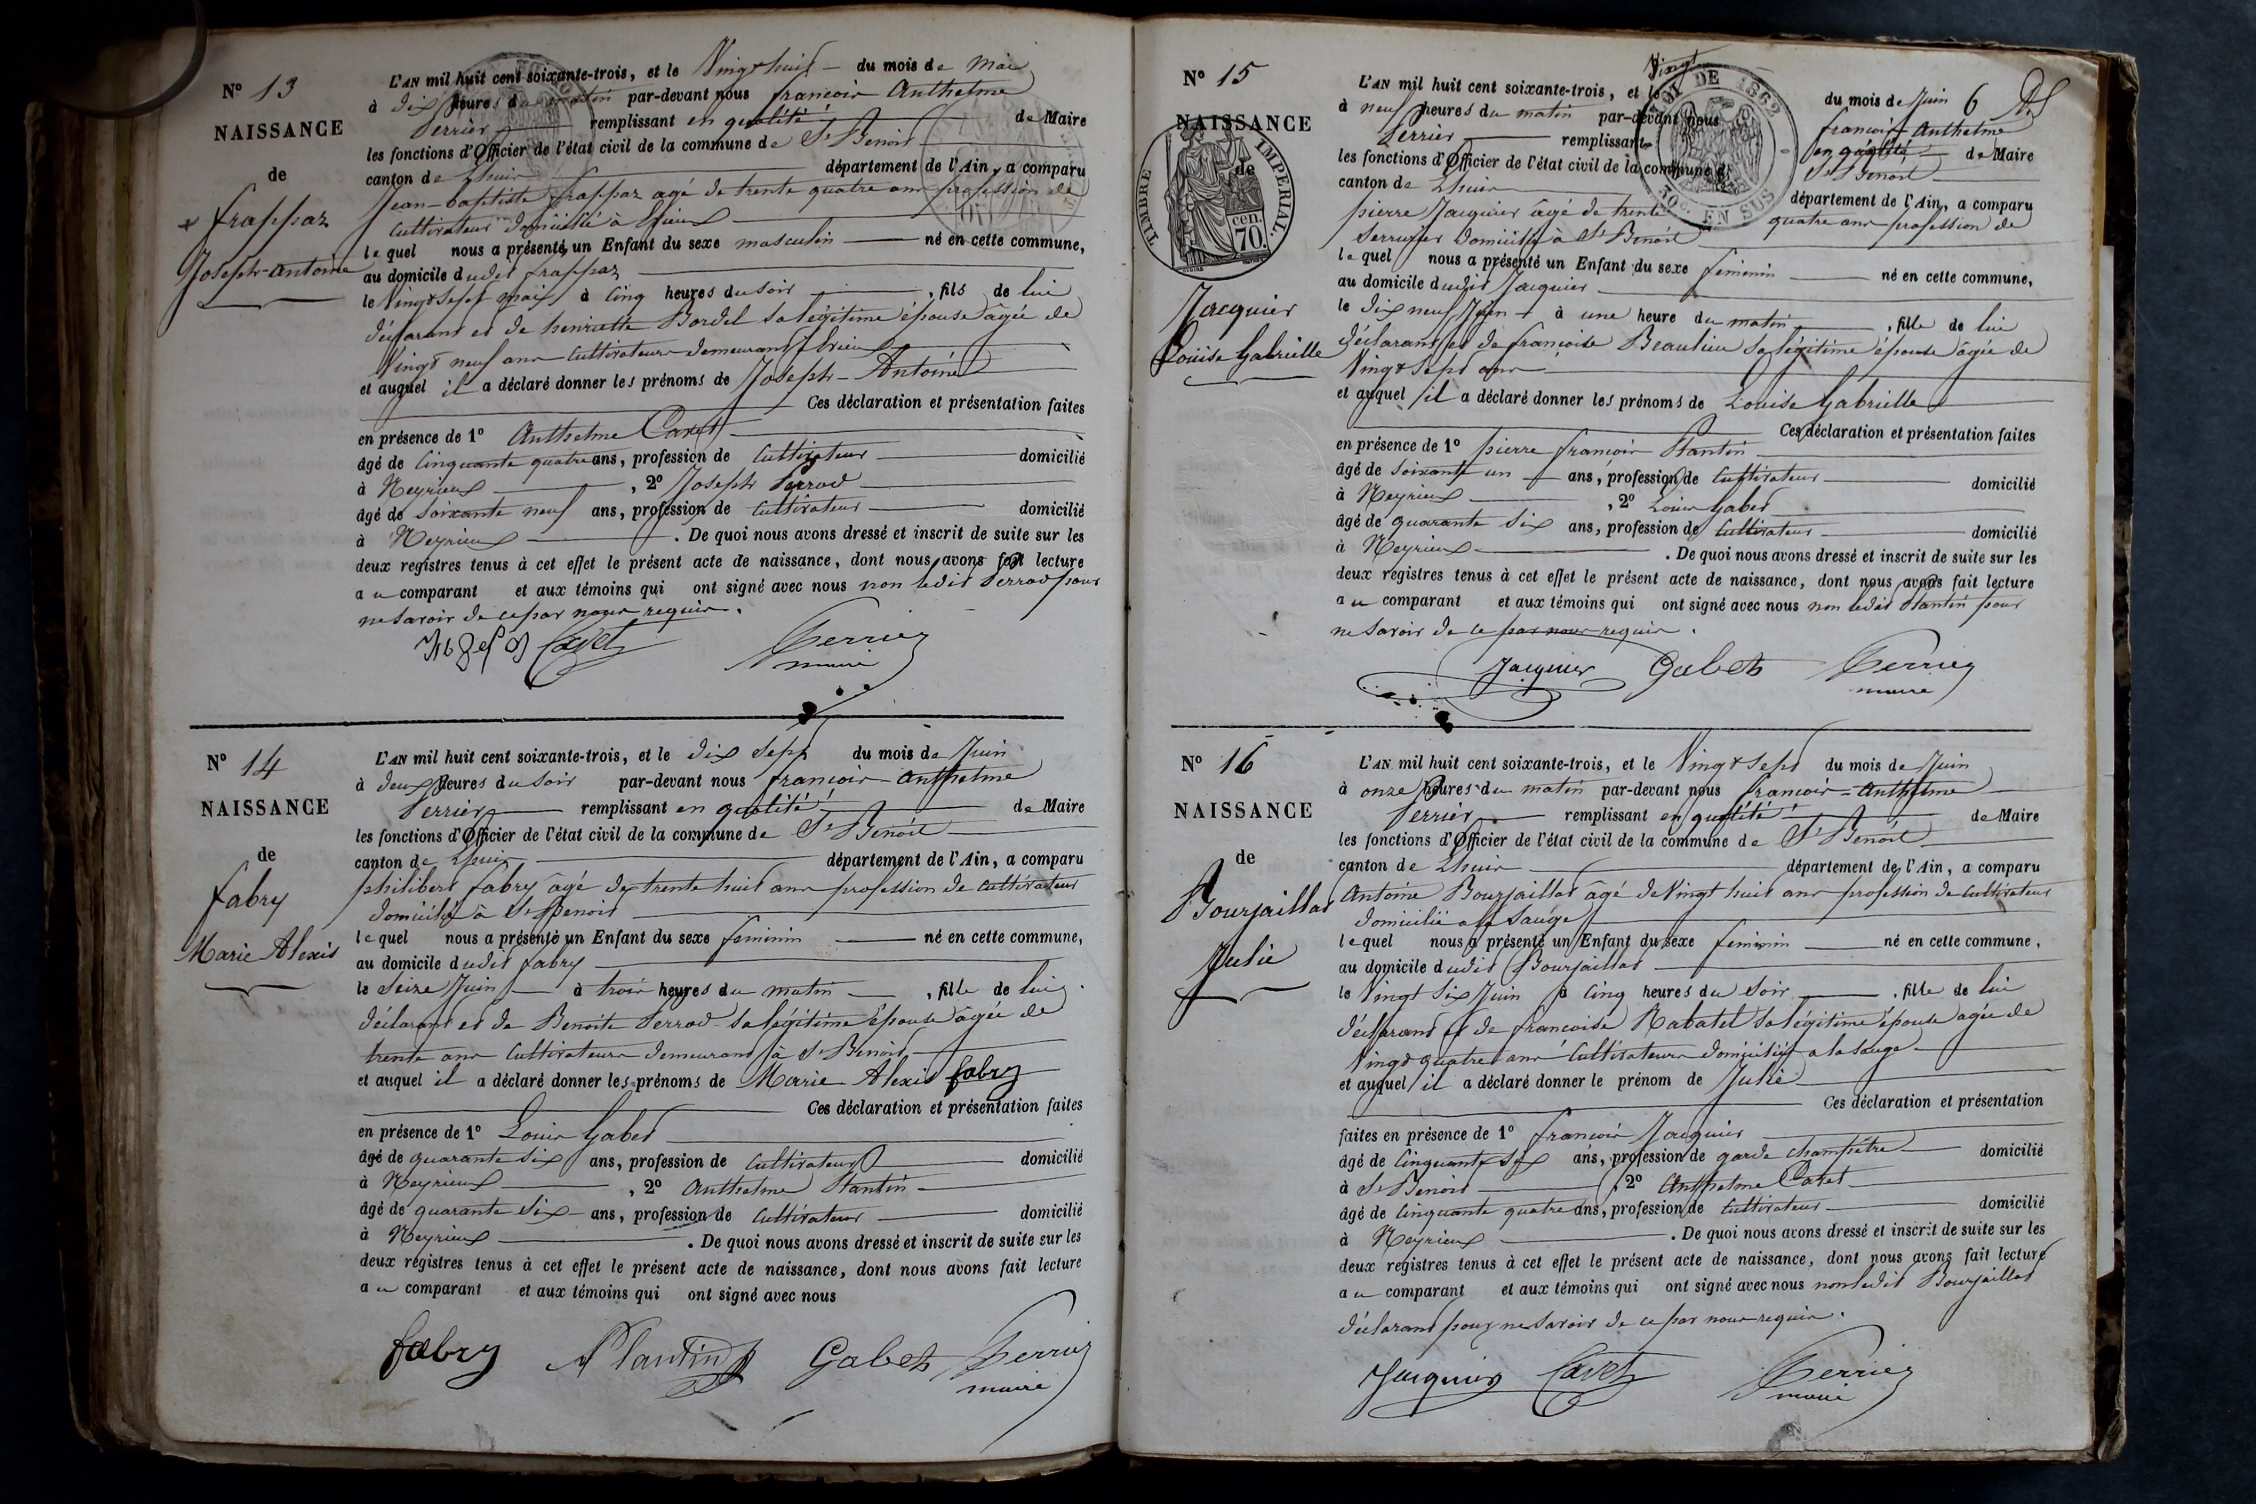 N° 13
NAISSANCE
de
frappaz
Joseph-antoine
L'AN mil huit cent soixante-trois, et le Vingt huit du mois de Mai
à dix heures du matin par-devant nous françois Anthelme
Perrier remplissant en qualité de Maire
les fonctions d'Officier de l'état civil de la commune de St Benoit
canton de Lhuis département de l'Ain, a comparu
Jean-baptiste frappaz agé de trente quatre ans profession de
Cultivateur domicilié à
le quel nous a présenté un Enfant du sexe masculin né en cette commune,
au domicile dudit frappaz
le Vingt Sept mai à Cinq heures du soir, fils de lui
déclarant et de henriette Bordel Sa légitime épouse âgée de
Vingt neuf ans Cultivateurs demeurant
et auquel il a déclaré donner les prénoms de Joseph-Antoine
Ces déclaration et présentation faites
en présence de 1° Anthelme Cavet
âgé de Cinquante quatre ans, profession de Cultivateur domicilié
à Neyrieux, 2° Joseph Perrod
âgé de Soixante neuf ans, profession de Cultivateur domicilié
à Neyrieux. De quoi nous avons dressé et inscrit de suite sur les
deux registres tenus à cet effet le présent acte de naissance, dont nous avons fait lecture
au comparant et aux témoins qui ont signé avec nous non ledit Perrod pour
ne Savoir de ce par nous requis.
Cavet Perrier
maire
N° 14
NAISSANCE
de
fabry
Marie Alexis
L'AN mil huit cent soixante-trois, et le dix Sept du mois de Juin
à deux heures du Soir par-devant nous françois Anthelme
Perrier remplissant en qualité de Maire
les fonctions d'Officier de l'état civil de la commune de St Benoit
canton de Lhuis département de l'Ain, a comparu
philibert fabry âgé de trente huit ans profession de Cultivateur
domicilié à St Benoit
le quel nous a présenté un Enfant du sexe feminin né en cette commune,
au domicile dudit fabry
le Seize Juin à trois heures du matin, fille de lui
déclarant et de Benoite Perrod Sa légitime Epouse âgée de
trente ans Cultivateurs demeurant à St Benoit
et auquel il a déclaré donner les prénoms de Marie Alexis fabry
Ces déclaration et présentation faites
en présence de 1° Louis Gabet
âgé de quarante Six ans, profession de Cultivateur domicilié
à Neyrieux, 2° Anthelme Plantin
âgé de quarante Six ans, profession de Cultivateur domicilié
à Neyrieux. De quoi nous avons dressé et inscrit de suite sur les
deux registres tenus à cet effet le présent acte de naissance, dont nous avons fait lecture
au comparant et aux témoins qui ont signé avec nous
fabry A Plantin Gabet Perrier
maire
N° 15
NAISSANCE
de
TIMBRE IMPERIAL.
70 cen.
Jacquier
Louise Gabrielle
DE 1862
10c. EN SUS
L'AN mil huit cent soixante-trois, et le Vingt du mois de Juin 6
à neuf heures du matin par-devant nous françois Anthelme
Perrier remplissant en qualité de Maire
les fonctions d'Officier de l'état civil de la commune de St Benoit
canton de Lhuis département de l'Ain, a comparu
pierre Jacquier âgé de trente quatre ans profession de
Serrurier domicilié à St Benoit
le quel nous a présenté un Enfant du sexe feminin né en cette commune,
au domicile dudit Jacquier
le dix neuf Juin à une heure du matin, fille de lui
déclarant et de françoise Beaulieu Sa légitime épouse âgée de
Vingt Sept ans
et auquel il a déclaré donner les prénoms de Louise Gabrielle
Ces déclaration et présentation faites
en présence de 1° pierre françois Plantin
âgé de Soixante un ans, profession de Cultivateur domicilié
à Neyrieux, 2° Louis Gabet
âgé de quarante Six ans, profession de Cultivateur domicilié
à Neyrieux. De quoi nous avons dressé et inscrit de suite sur les
deux registres tenus à cet effet le présent acte de naissance, dont nous avons fait lecture
au comparant et aux témoins qui ont signé avec nous non ledit Plantin pour
ne Savoir de ce par nous requis.
Jacquier Gabet Perrier
maire
N° 16
NAISSANCE
de
Bourjaillat
Julie
L'AN mil huit cent soixante-trois, et le Vingt Sept du mois de Juin
à onze heures du matin par-devant nous françois-Anthelme
Perrier remplissant en qualité de Maire
les fonctions d'Officier de l'état civil de la commune de St Benoit
canton de Lhuis département de l'Ain, a comparu
Antoine Bourjaillat âgé de Vingt huit ans profession de Cultivateur
domicilié a la Sauge
le quel nous a présenté un Enfant du sexe feminin né en cette commune,
au domicile dudit Bourjaillat
le Vingt Six Juin à Cinq heures du Soir, fille de lui
déclarant et de françoise Rabatel Sa légitime épouse agée de
Vingt quatre ans Cultivateurs domiciliés a la Sauge
et auquel il a déclaré donner le prénom de Julie
Ces déclaration et présentation
faites en présence de 1° françois Jacquier
âgé de Cinquante Six ans, profession de garde champêtre domicilié
à St Benoit, 2° Anthelme Cavet
âgé de Cinquante quatre ans, profession de Cultivateur domicilié
à Neyrieux. De quoi nous avons dressé et inscrit de suite sur les
deux registres tenus à cet effet le présent acte de naissance, dont nous avons fait lecture
au comparant et aux témoins qui ont signé avec nous non ledit Bourjaillat
déclarant pour ne Savoir de ce par nous requis.
Jacquier Cavet Perrier
maire